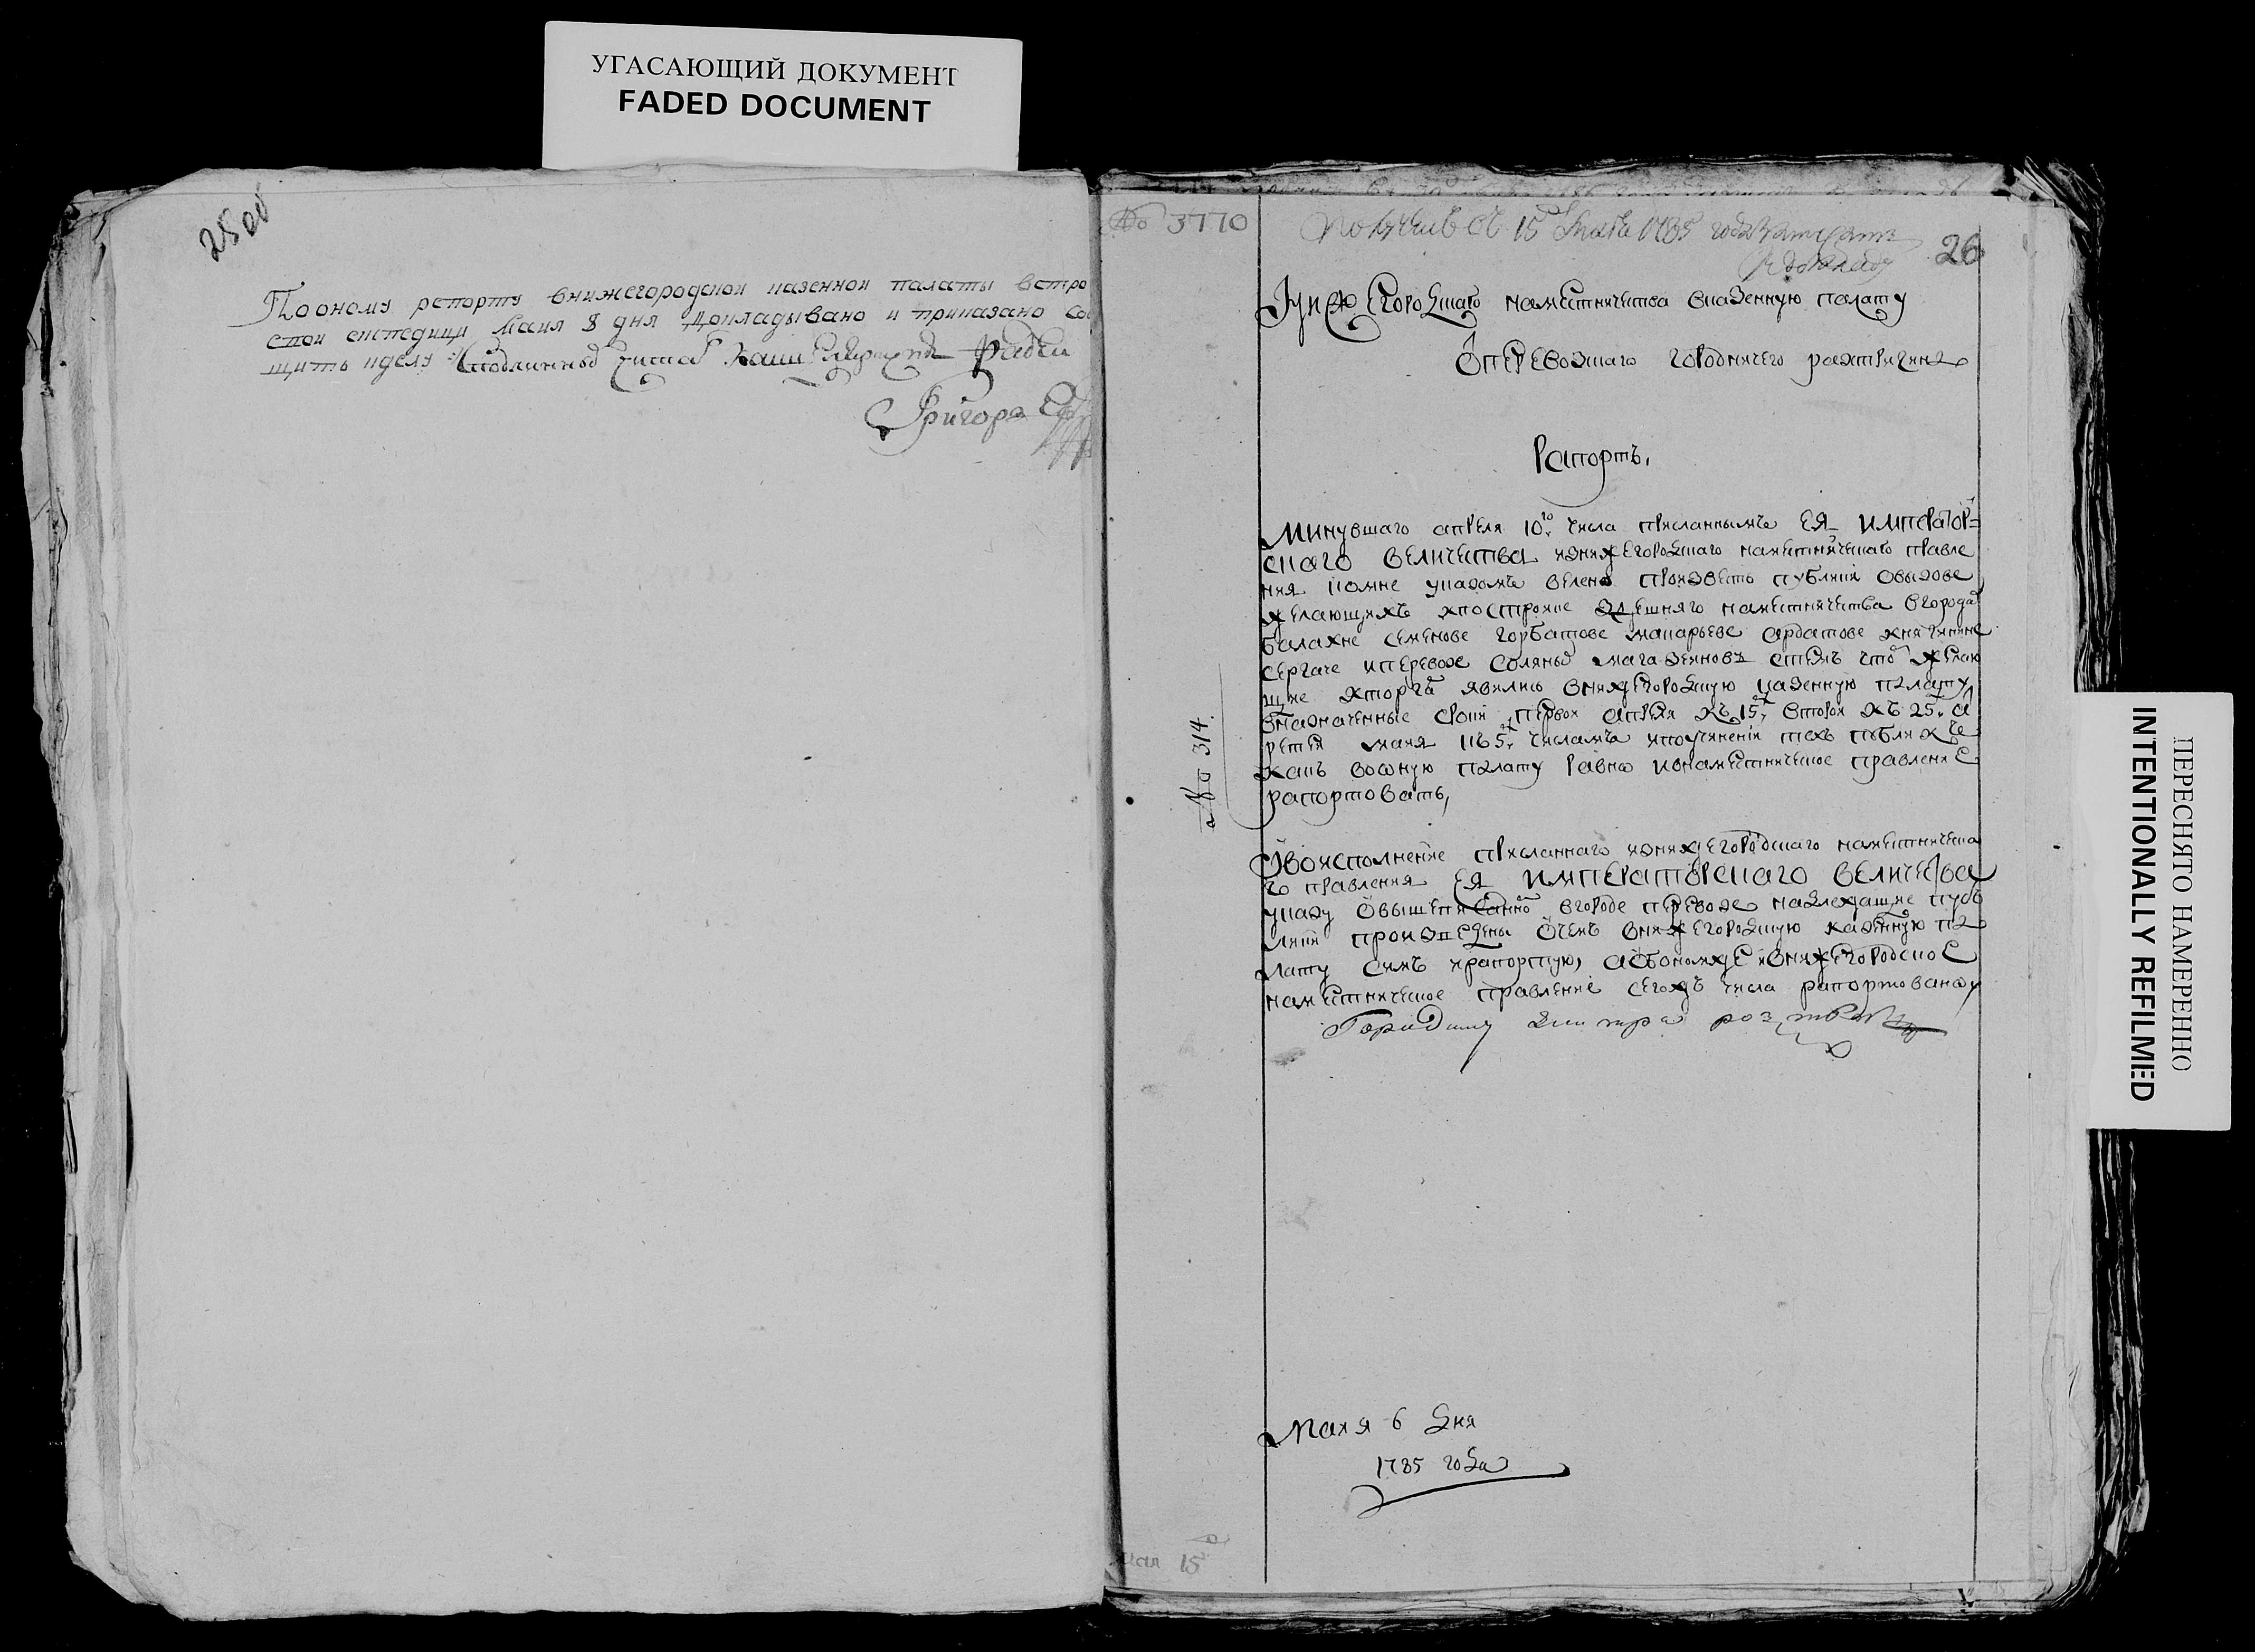 УГАСАЮЩИЙ ДОКУМЕНТ
FADED DOCUMENT
25 об
По оному репорту внижегородской казенной палаты встро
стои експедицы маия 8 дня докладывано и приказано соо
щить кделу
Григоре
№ 3770
15 маия 1785 года
к докладу
26
нижегороцкаго наместничества вказенную палату
отперевозскаго городничего разтригина
Рапортъ,
Минувшаго апреля 10го числа присланнымъ ЕЯ ИМПЕРАТОР=
скаго ВЕЛИЧЕСТВА изнижегороцкаго наместническаго правле
ния комне указомъ велено произвесть публики овызове
желающихъ кпостройке здешняго наместничества вгорода
балахне семенове горбатове макарьеве ардатове княгинине
сергаче иперевозе соляныя магазейновъ стемъ чтоб желаю
щие кторга явились внижегороцкую казенную палату
вназначенные сроки первои апреля къ 15, второи къ 25, а
ретеи маия къ 5, числамъ ипоучинении техъ публикъ
какъ воную палату равно ивнаместническое правление
рапортовать,
№ 314.
Воисполнение присланнаго изнижегородскаго наместническа
го правления ЕЯ ИМПЕРАТОРСКАГО ВЕЛИЧЕСТВА
указу овышеписанно вгороде перевозе надлежащие пуб
лики произведены очемъ внижегороцкую казенную па
лату симъ ирапортую, аобономже ивнижегородское
наместническое правление сегожъ числа рапортовано
Городничи
маия 6 дня
1785 года
маия 15
ПЕРЕСНЯТО НАМЕРЕННО
INTENTIONALLY REFILMED